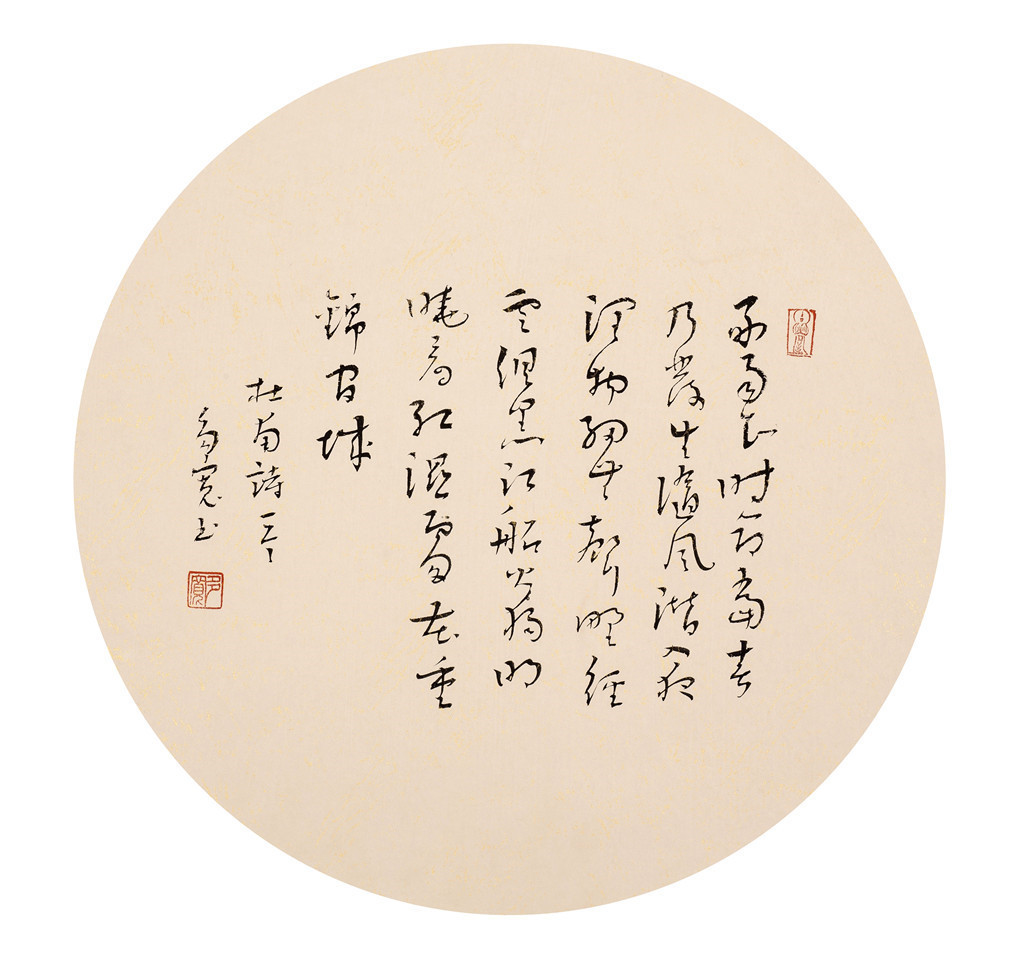 好雨知时節當春
乃發生隨風潛入夜
潤物細無聲野徑
雲俱黑江船火獨明
曉看紅濕處花重
錦官城
杜甫詩一首
多寬书
多寬